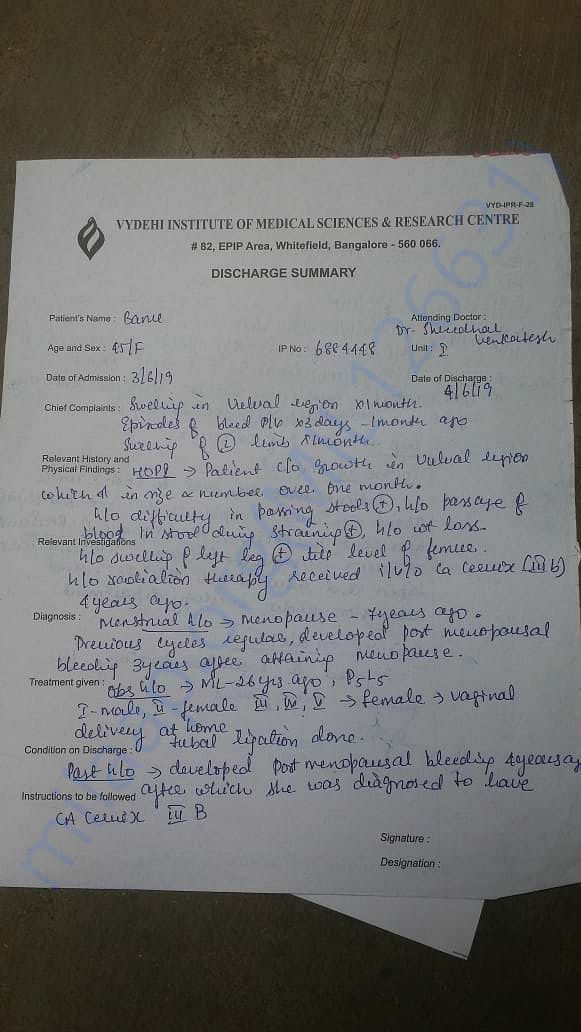 VYD-IPR-F-28
VYDEHI INSTITUTE OF MEDICAL SCIENCES & RESEARCH CENTRE
# 82, EPIP Area, Whitefield, Bangalore - 560 066.
DISCHARGE SUMMARY
Patient's Name : Banu
Attending Doctor :
Dr. Shreedhal Venkatesh
Age and Sex : 45/F
IP No : 6884448
Unit : I
Date of Admission : 3/6/19
Date of Discharge :
4/6/19
Chief Complaints : Swelling in Vulval region x1month.
Episodes of bleed P/V x3 days - 1month ago
Swelling of L limb x1month.
Relevant History and
Physical Findings : HOPI → Patient c/o growth in vulval region
which ↑ in size & number over one month.
h/o difficulty in passing stools +, h/o passage of
blood in stool during straining +, h/o wt loss.
Relevant Investigations
h/o swelling of left leg + till level of femur.
h/o radiation therapy received i/v/o ca cervix (III b)
4years ago.
Diagnosis : Menstrual h/o → menopause - 7years ago.
Previous cycles regular, developed post menopausal
bleeding 3years after attaining menopause.
Treatment given : Obs h/o → ML-26yrs ago, P5L5
I-male, II-female III, IV, V → female → vaginal
delivery at home
tubal ligation done.
Condition on Discharge :
Past h/o → developed Post menopausal bleeding 4years ago
Instructions to be followed after which she was diagnosed to have
CA cervix III B
Signature :
Designation :